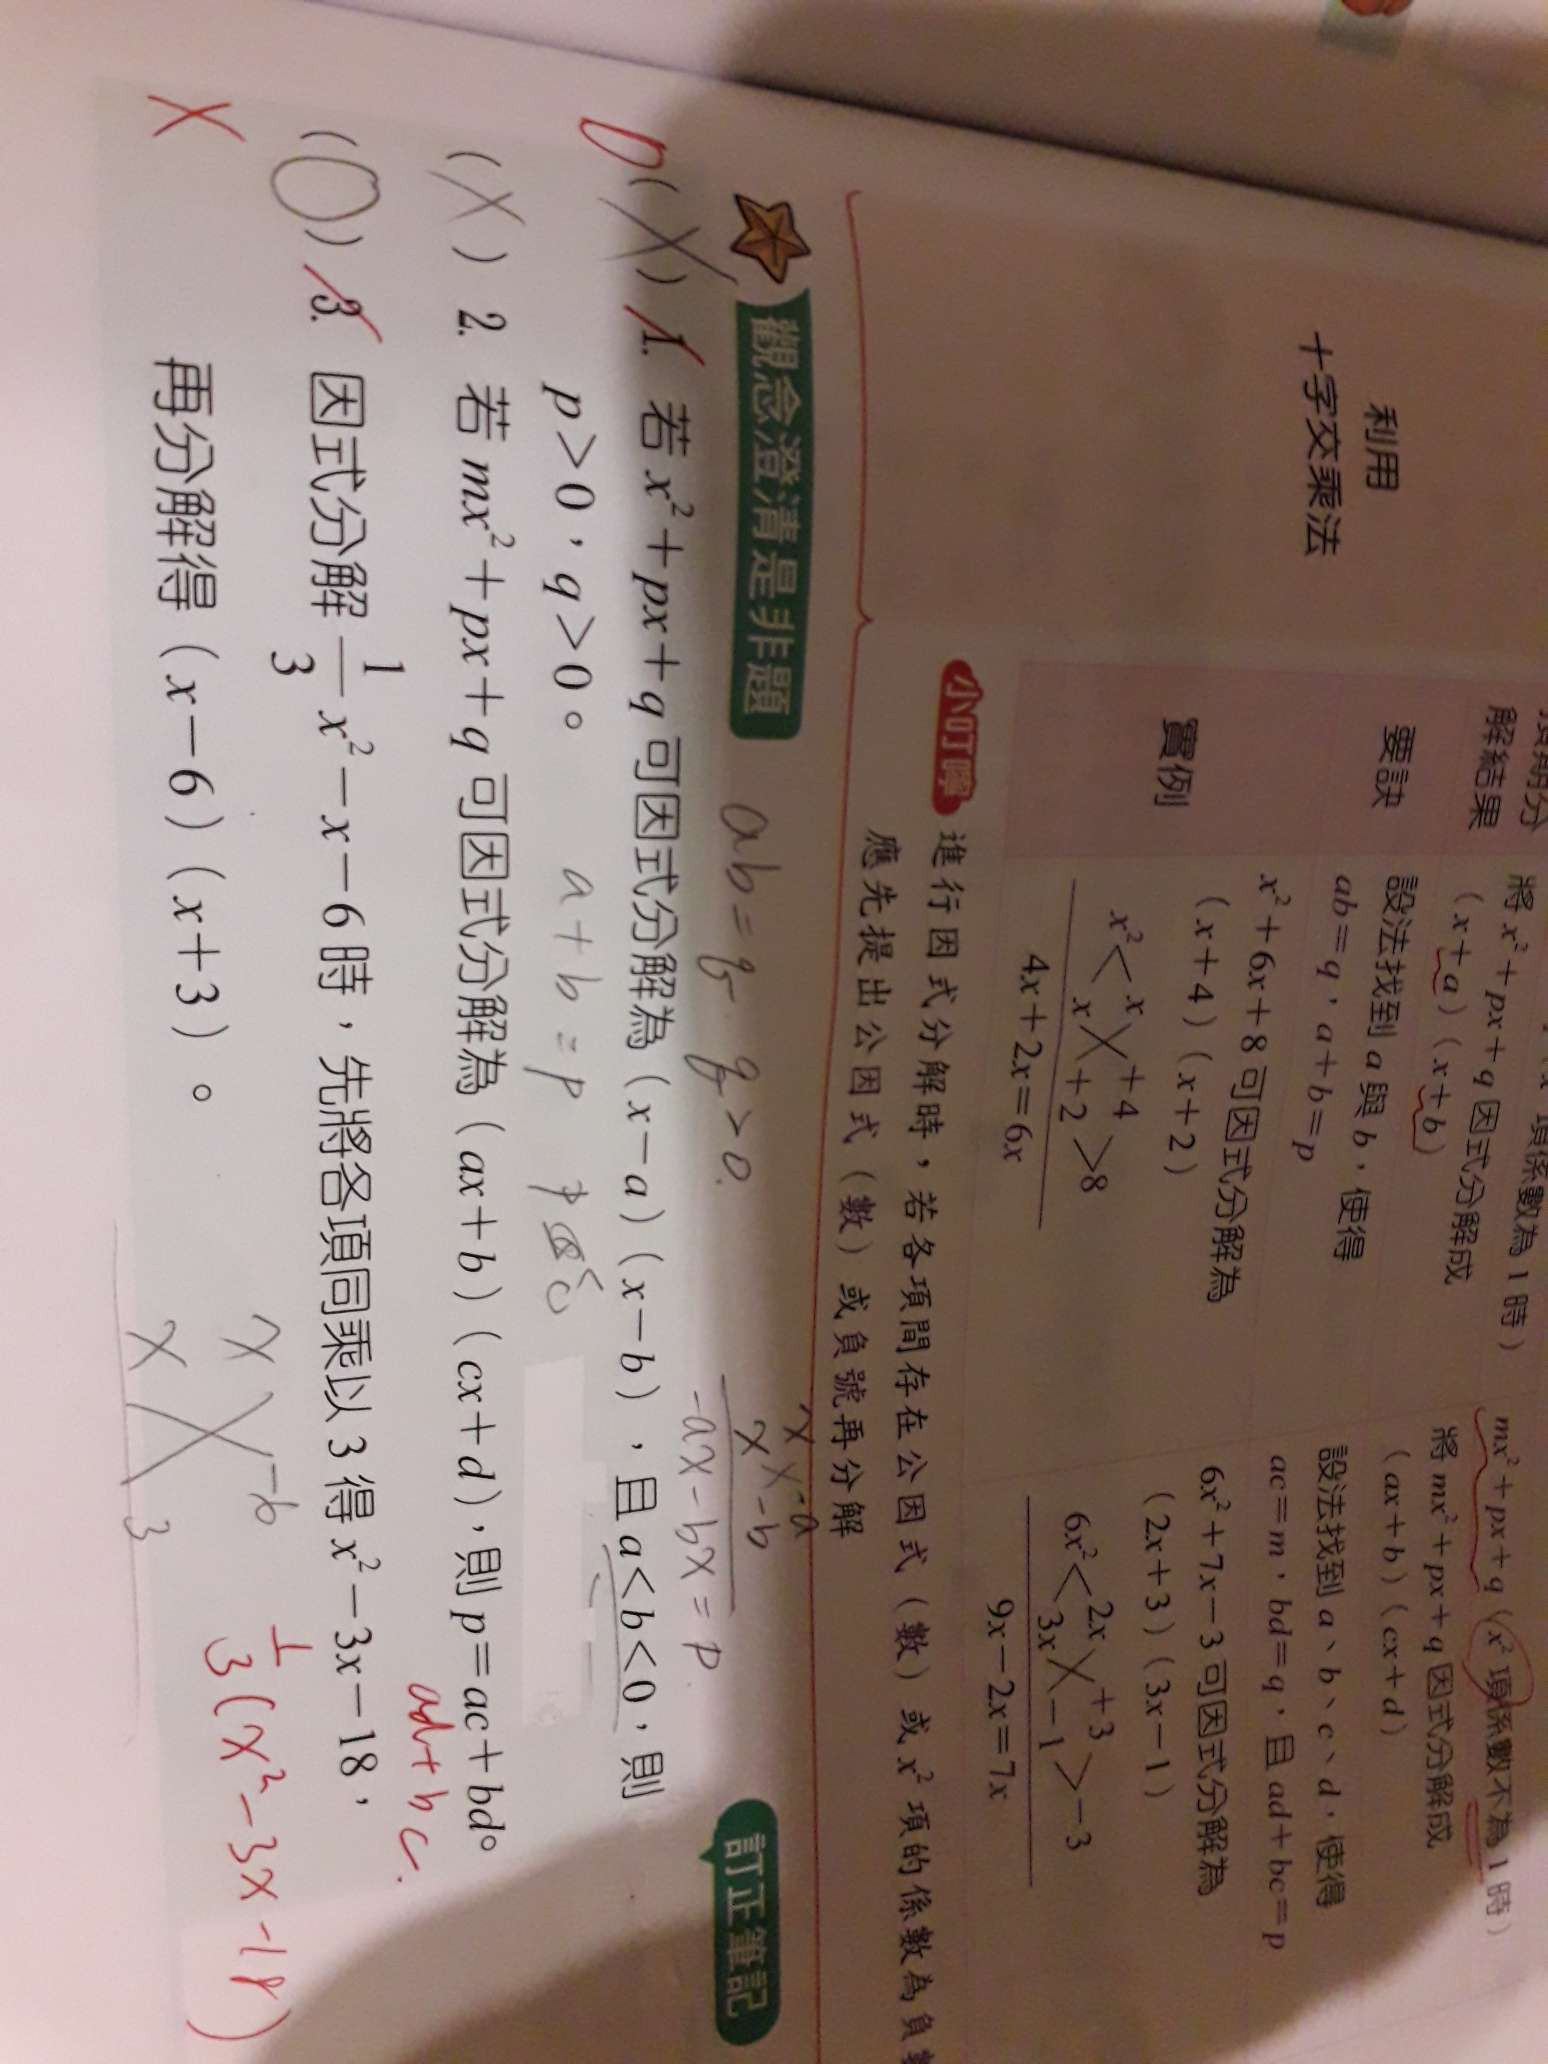 利用
十字交乘法
解結果
將 x²+px+q 因式分解成
(x+a)(x+b)
mx²+px+q (x² 項係數不為 1 時)
將 mx²+px+q 因式分解成
(ax+b)(cx+d)
要訣
設法找到 a 與 b，使得
ab=q，a+b=p
設法找到 a、b、c、d，使得
ac=m，bd=q，且 ad+bc=p
實例
x²+6x+8 可因式分解為
(x+4)(x+2)
x² < x +4
x +2 > 8
4x+2x=6x
6x²+7x−3 可因式分解為
(2x+3)(3x−1)
6x² < 2x +3
3x −1 > −3
9x−2x=7x
小叮嚀
進行因式分解時，若各項間存在公因式（數）或 x² 項的係數為負
應先提出公因式（數）或負號再分解
觀念澄清是非題
ab=q q>0.
x -a
x -b
-ax-bx=p
訂正筆記
(X) 1. 若 x²+px+q 可因式分解為 (x−a)(x−b)，且 a<b<0，則
p>0，q>0。
a+b=p
(X) 2. 若 mx²+px+q 可因式分解為 (ax+b)(cx+d)，則 p=ac+bd。
ad+bc.
(O) 3. 因式分解 1/3 x²−x−6 時，先將各項同乘以 3 得 x²−3x−18，
再分解得 (x−6)(x+3)。
X
x -6
x 3
1/3(x²-3x-18)